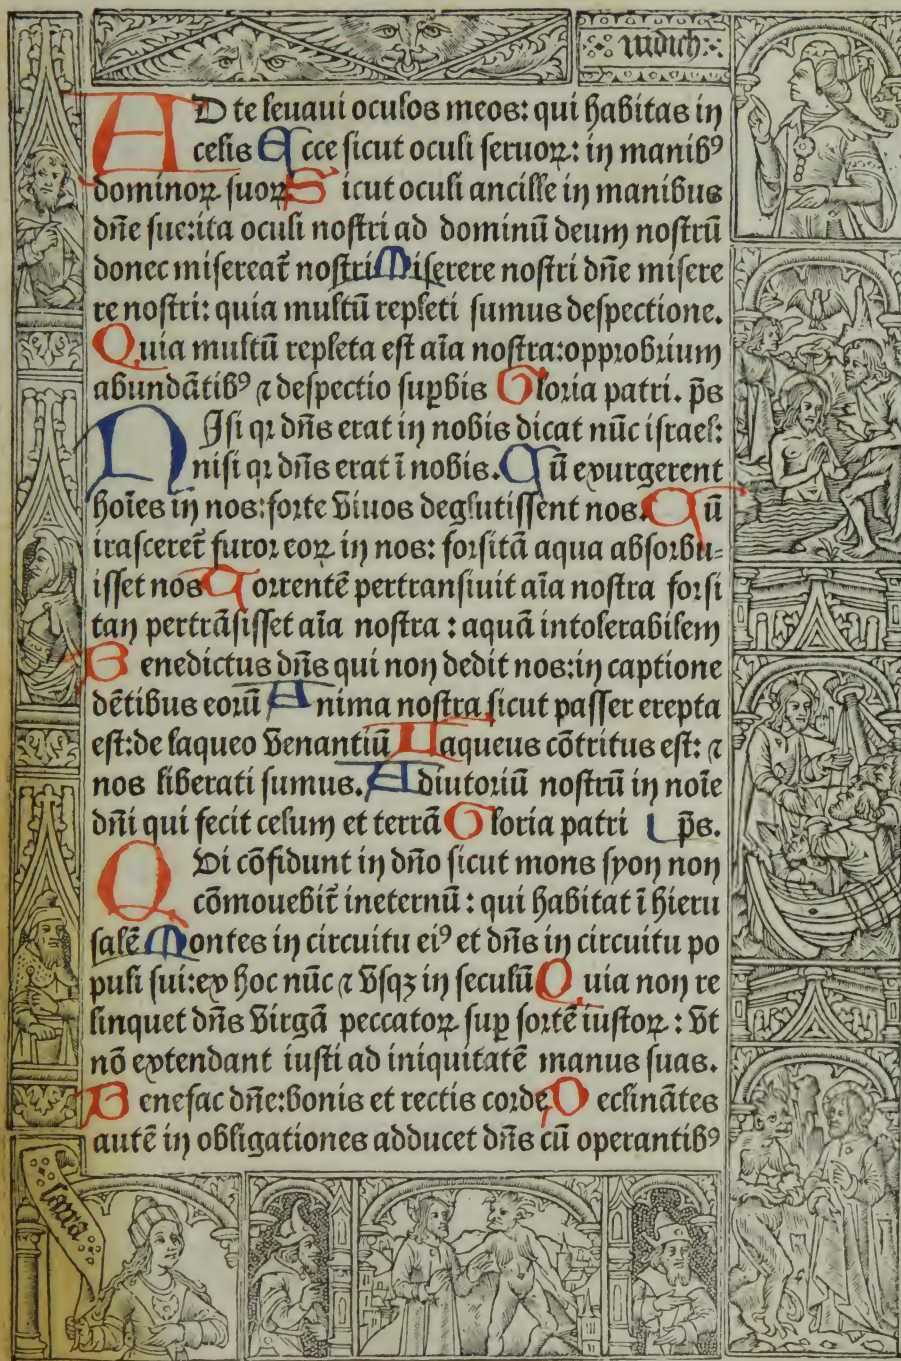 iudich
AD te leuaui oculos meos: qui habitas in
celis Ecce sicut oculi seruoꝝ: in manibꝰ
dominoꝝ suoꝝ Sicut oculi ancille in manibus
dñe sue: ita oculi nostri ad dominũ deum nostrũ
donec misereat᷑ nostri Miserere nostri dñe misere
re nostri: quia multũ repleti sumus despectione.
Quia multũ repleta est aĩa nostra: opprobrium
abundãtibꝰ ⁊ despectio suꝑbis Gloria patri. p̃s
NIsi qꝛ dñs erat in nobis dicat nũc israel:
nisi qꝛ dñs erat ĩ nobis. Cũ exurgerent
hoĩes in nos: forte viuos deglutissent nos. Cũ
irasceret᷑ furor eoꝝ in nos: forsitã aqua absorbu⸗
isset nos Torrentẽ pertransiuit aĩa nostra forsi
tan pertrãsisset aĩa nostra : aquã intolerabilem
Benedictus dñs qui non dedit nos: in captione
dẽtibus eorũ Anima nostra sicut passer erepta
est: de laqueo venantiũ Laqueus cõtritus est: ⁊
nos liberati sumus. Adiutoriũ nostrũ in noĩe
dñi qui fecit celum et terrã Gloria patri p̃s.
QVi cõfidunt in dño sicut mons syon non
cõmouebit᷑ ineternũ : qui habitat ĩ hieru
salẽ Montes in circuitu eiꝰ et dñs in circuitu po
puli sui: ex hoc nũc ⁊ vsqꝫ in seculũ Quia non re
linquet dñs virgã peccatoꝝ suꝑ sortẽ iustoꝝ : vt
nõ extendant iusti ad iniquitatẽ manus suas.
Benefac dñe: bonis et rectis corde Declinãtes
autẽ in obligationes adducet dñs cũ operantibꝰ